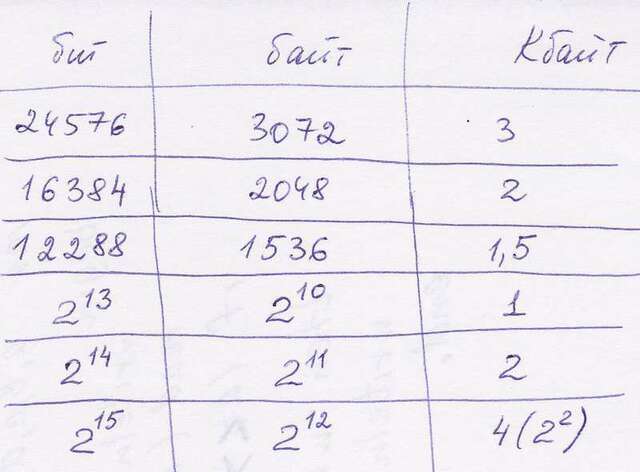 бит байт Кбайт
24576 3072 3
16384 2048 2
12288 1536 1,5
2¹³ 2¹⁰ 1
2¹⁴ 2¹¹ 2
2¹⁵ 2¹² 4(2²)